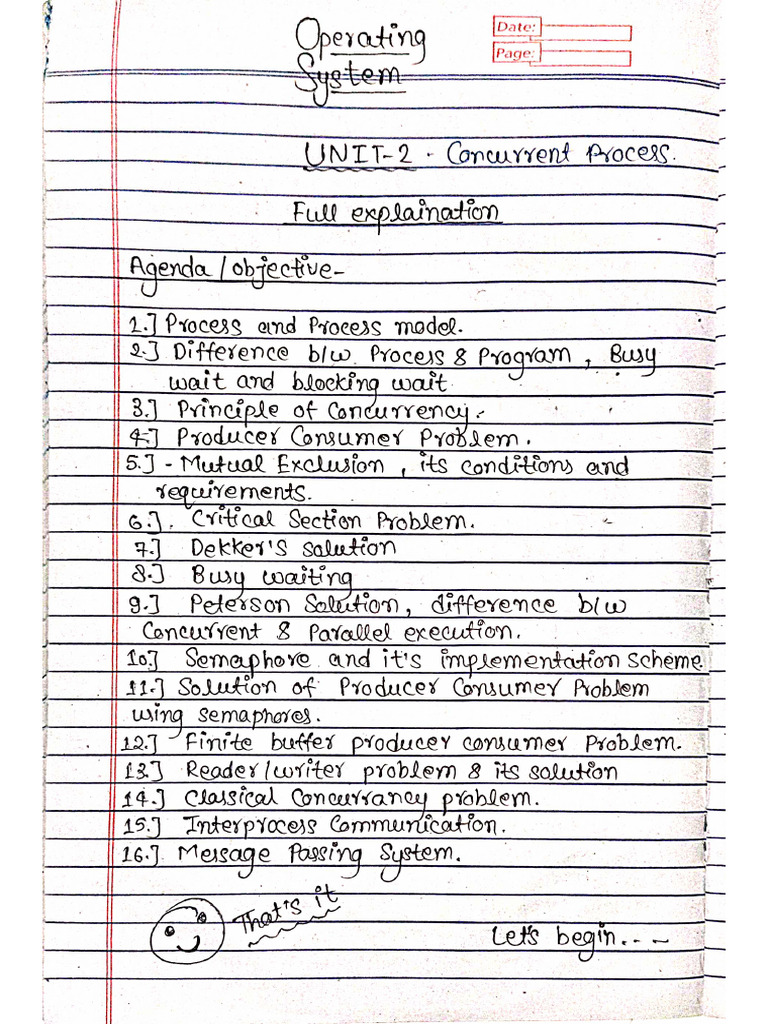 Operating
System
Date:
Page:
UNIT-2 - Concurrent Process.
Full explaination
Agenda / objective-
1.] Process and Process model.
2.] Difference b/w Process & Program , Busy
wait and blocking wait
3.] Principle of Concurrency.-
4.] Producer Consumer Problem.
5.] - Mutual Exclusion , its conditions and
requirements.
6.]. Critical Section Problem.
7.] Dekker's solution
8.] Busy waiting
9.] Peterson Solution, difference b/w
Concurrent & Parallel execution.
10.] Semaphore and it's implementation scheme
11.] Solution of Producer Consumer Problem
using semaphores.
12.] Finite buffer producer consumer Problem.
13.] Reader/writer problem & its solution
14.] Classical Concurrancy problem.
15.] Interprocess Communication.
16.] Message Passing System.
That's it
Let's begin...-